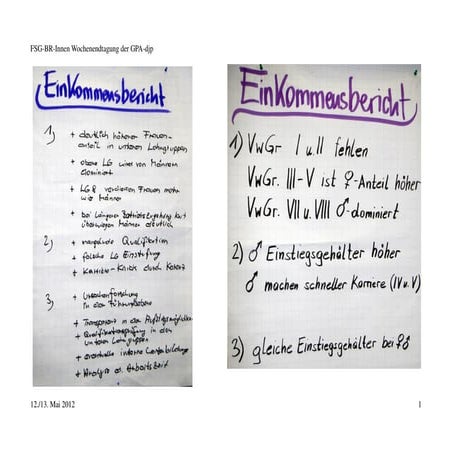 FSG-BR-Innen Wochenendtagung der GPA-djp
Einkommensbericht
1) + deutlich höherer Frauen-
anteil in unteren Lohngruppen
+ obere LG wird von Männern
dominiert
+ LG 2 verdienen Frauen mehr
wie Männer
+ bei längerer
überwiegen Männer deutlich
2) + mangelnde Qualifikation
+ falsche LG Einstufung
+ Karriere-Knick durch Karenz
3) + Ursachenforschung
in der
+ Transparenz in den
+ Qualifikationsprüfung in den
unteren Lohngruppen
+ eventuelle interne
+ Analyse d. Arbeitszeit
Einkommensbericht
1) VwGr I u. II fehlen
VwGr. III-V ist ♀-Anteil höher
VwGr. VII u. VIII ♂-dominiert
2) ♂ Einstiegsgehälter höher
♂ machen schneller Karriere (IV u. V)
3) gleiche Einstiegsgehälter bei ♀♂
12./13. Mai 2012
1